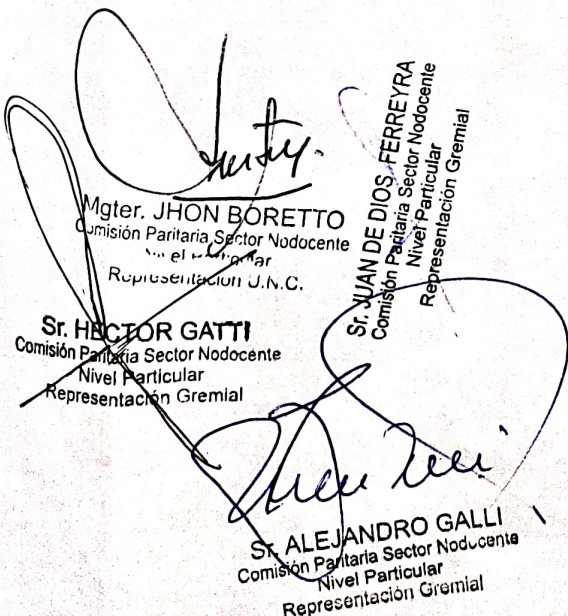 Mgter. JHON BORETTO
Comisión Paritaria Sector Nodocente
Representación U.N.C.
Sr. JUAN DE DIOS FERREYRA
Comisión Paritaria Sector Nodocente
Nivel Particular
Representación Gremial
Sr. HECTOR GATTI
Comisión Paritaria Sector Nodocente
Nivel Particular
Representación Gremial
Sr. ALEJANDRO GALLI
Comisión Paritaria Sector Nodocente
Nivel Particular
Representación Gremial